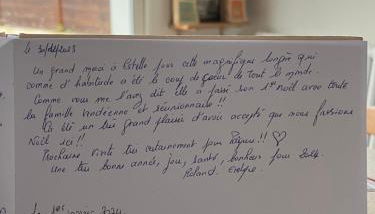 Le 30/12/2023
Un grand merci à Estelle pour cette magnifique longère qui
comme d'habitude a été le coup de cœur de tout le monde.
Comme vous me l'avez dit elle a passé son 1er Noël avec toute
la famille vendéenne et réunionnaise !!
ça été un très grand plaisir d'avoir accepté que nous fassions
Noël ici !!
Prochaine visite très certainement pour Pâques !! ♡
Une très bonne année, joie, santé, bonheur pour 2024.